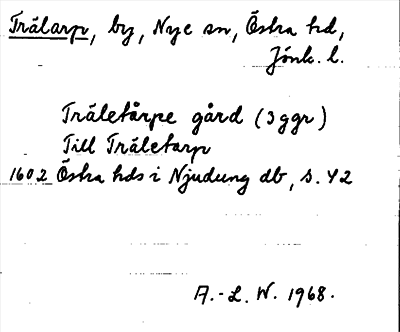 Trälarp, by, Nye sn, Östra hd,
Jönk. l.
Träletårpe gård (3 ggr)
Till Träletarp
1602 Östra hds i Njudung db, s. 42
A.-L. W. 1968.